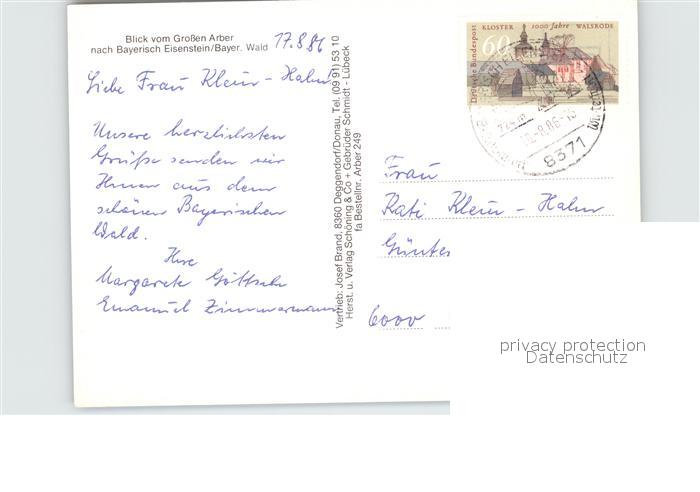 Blick vom Großen Arber
nach Bayerisch Eisenstein/Bayer. Wald
17.8.86
Liebe Frau Klein-Hahn
Unsere herzlichsten
Grüße senden wir
Ihnen aus dem
schönen Bayerischen
Wald.
Ihre
Margarete Göttsche
Emanuel Zimmermann
Vertrieb: Josef Brand, 8360 Deggendorf/Donau, Tel. (09 91) 53 10
Herst. u. Verlag Schöning & Co + Gebrüder Schmidt - Lübeck
fa Bestellnr. Arber 249
KLOSTER 1000 Jahre WALSRODE
60
Deutsche Bundespost
8371
Frau
Kati Klein-Hahn
Günters
6000
privacy protection
Datenschutz